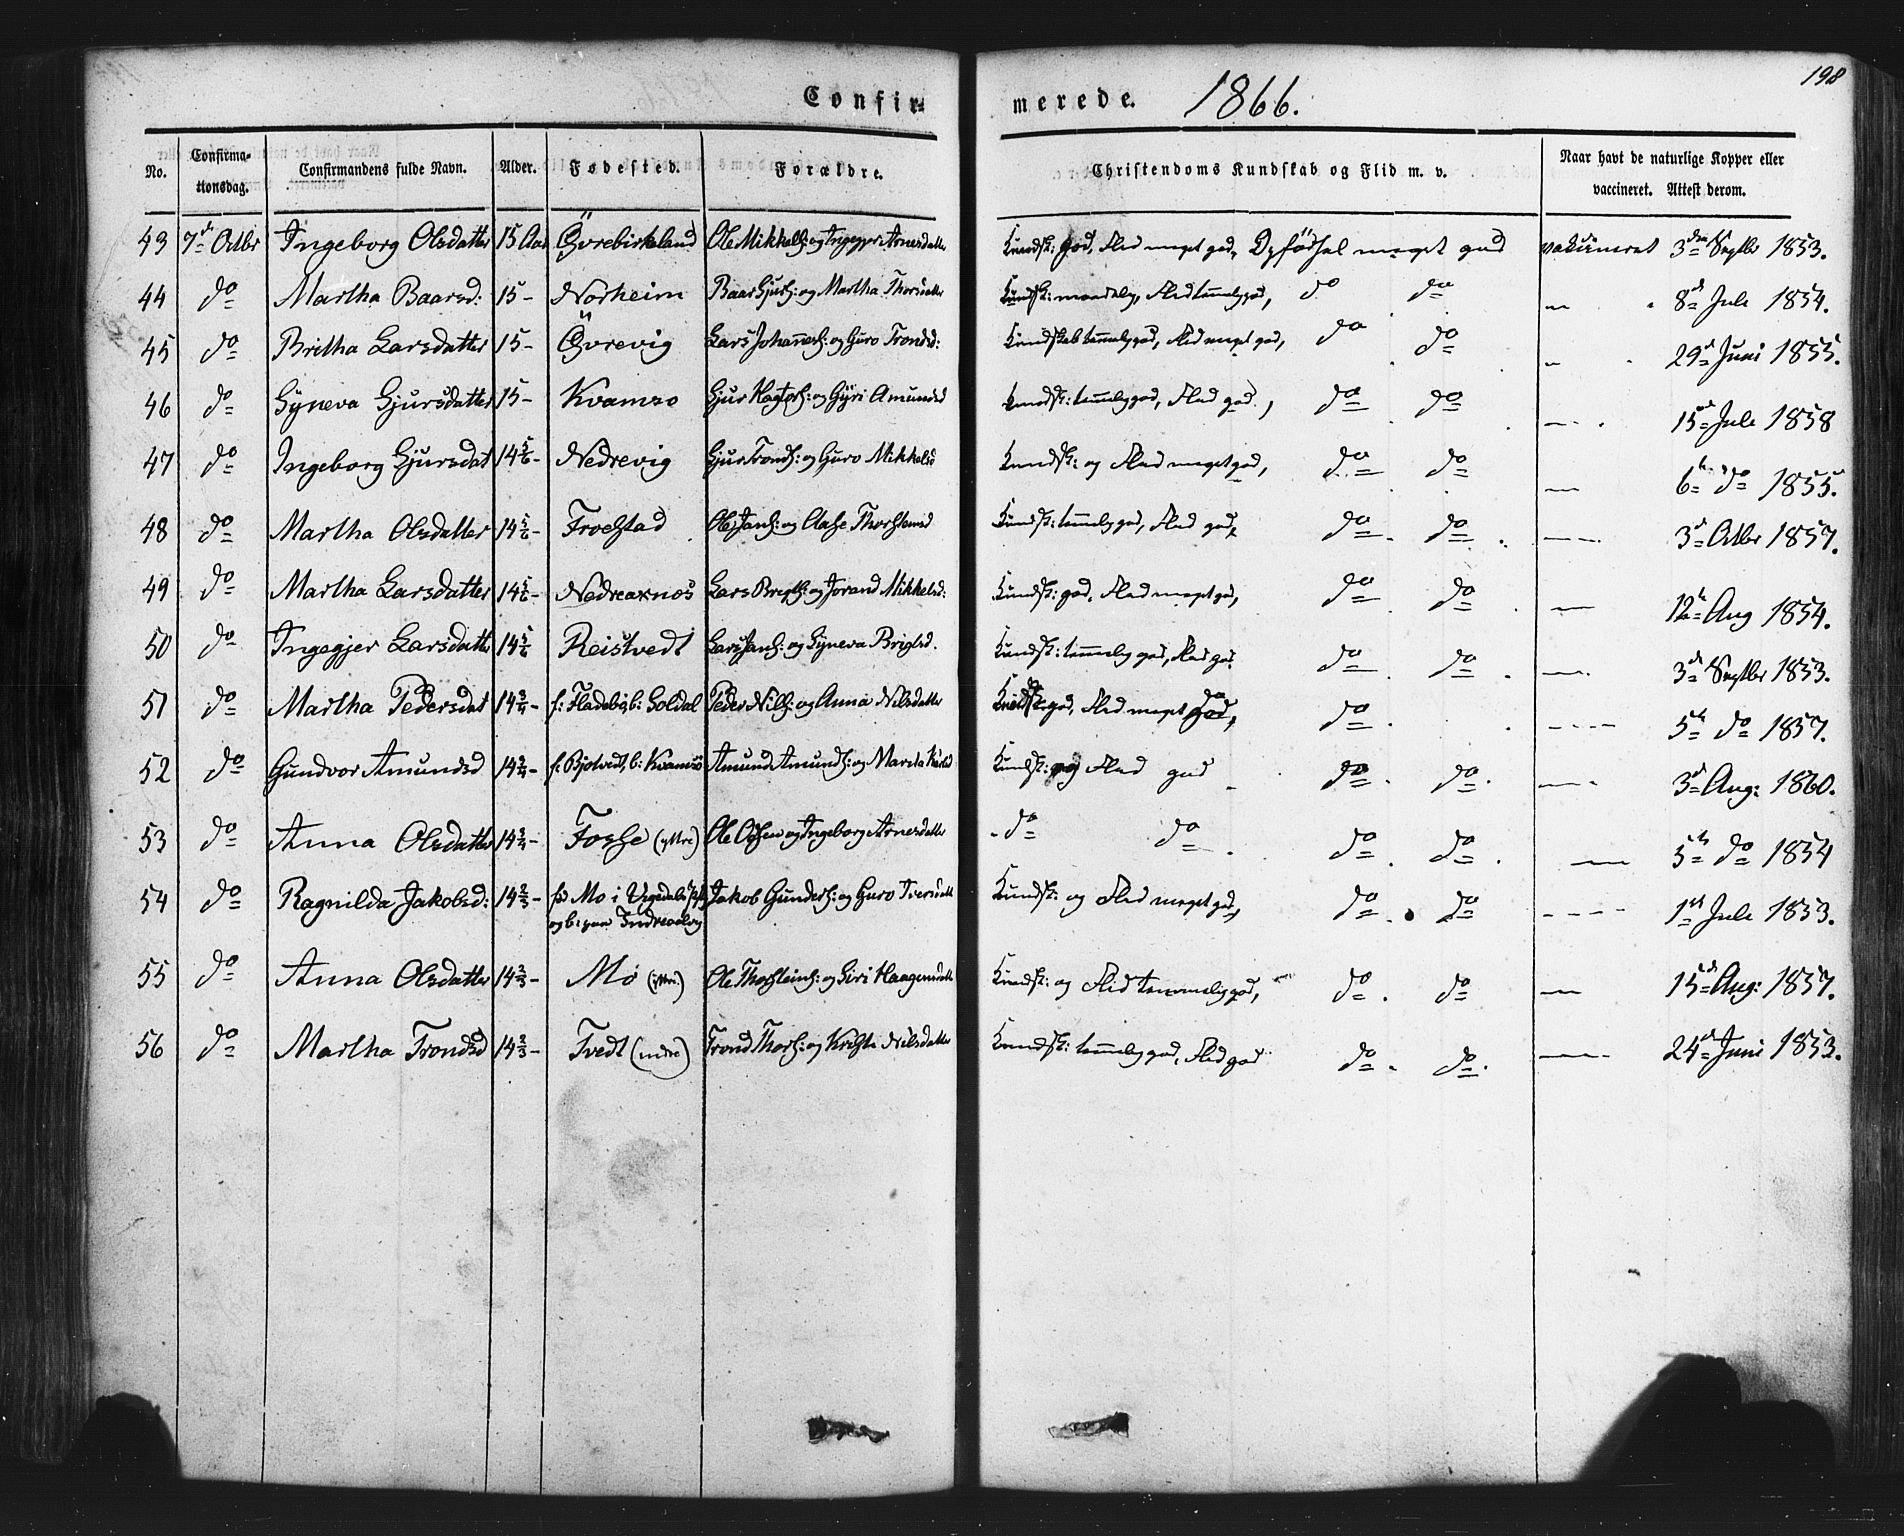 198
Confir- merede. 1866.
No. | Confirma-tionsdag. | Confirmandens fulde Navn. | Alder. | Fødested. | Forældre. | Christendoms Kundskab og Flid m. v. | Naar havt de naturlige Kopper eller vaccineret. Attest derom.
43 | 7d Octbr | Ingeborg Olsdatter | 15 Aar | Øvrebirkeland | Ole Mikkels: og Ingegjer Arnesdatter | Kundsk: god, Flid meget god, Opførsel meget god | vakcineret 3die Septbr 1853.
44 | do | Martha Baarsd: | 15- | Norheim | Baar Gjurs: og Martha Thorsdatter | Kundsk: maadelig, Flid temmelig god, do do | — 8d Jule 1854.
45 | do | Britha Larsdatter | 15- | Øvrevig | Lars Johannes: og Guro Trondsd: | Kundskab temmelig god, Flid meget god, do do | — 29d Juni 1855.
46 | do | Syneva Gjursdatter | 15- | Kvamso | Gjur Hagtors: og Gyri Amundsd | Kundsk: temmelig god, Flid god, do do | — 15d Jule 1858
47 | do | Ingeborg Gjursdat | 14 5/6- | Nedrevig | Gjur Tronds: og Guro Mikkelsd | Kundsk: og Flid meget god, do do | — 6te do 1855.
48 | do | Martha Olsdatter | 14 5/6- | Froestad | Ole Jans: og Aase Thorstensd | Kundsk: temmelig god, Flid god, do do | — 3d Octbr 1857.
49 | do | Martha Larsdatter | 14 5/6- | Nedreaxnes | Lars Brigts: og Jorand Mikkelsd: | Kundsk: god, Flid meget god, do do | — 12te Aug 1854.
50 | do | Ingegjer Larsdatter | 14 5/6 | Reistvedt | Lars Jans: og Syneva Brigtsd. | Kundsk: temmelig god, Flid god do do | — 3d Septbr 1853.
51 | do | Martha Pedersdat | 14 3/4- | f: Fladebø, b: Soldal | Peder Nils: og Anna Nilsdatter | Kundsk: god, Flid meget god, do do | — 5te do 1857.
52 | do | Gundvor Amundsd | 14 3/4- | f: Bjotvedt, b: Kvamsø | Amund Amunds: og Marita | Kundsk: og Flid god do do | — 3d Aug: 1860.
53 | do | Anna Olsdatter | 14 3/4- | Fosse (yttre) | Ole og Ingeborg Arnesdatter | do do do do | — 5te do 1854
54 | do | Ragnilda Jakobsd: | 14 2/3- | fø Mo i og b: paa | Jakob Gunders: og Guro Iversdatt | Kundsk: og Flid meget god, do do | — 1ste Jule 1853.
55 | do | Anna Olsdatter | 14 2/3- | Mo (yttre.) | Ole Thorsteins: og Siri Haagensdatt | Kundsk: og Flid temmelig god, do do | — 15d Aug: 1857.
56 | do | Martha Trondsd | 14 2/3- | Tvedt (indre) | Trond Thors: og Kristi Nilsdatter | Kundsk: temmelig god, Flid god do do | — 24d Juni 1853.